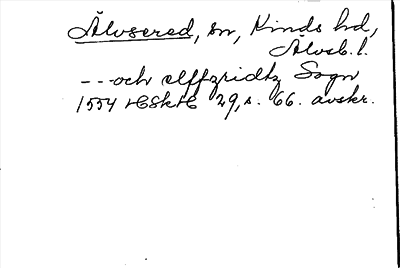 Älvsered, sn, Kinds hd,
Älvsb. l.
--- och elffzridtz Sogn
1554 HSkH 29, s. 66. avskr.